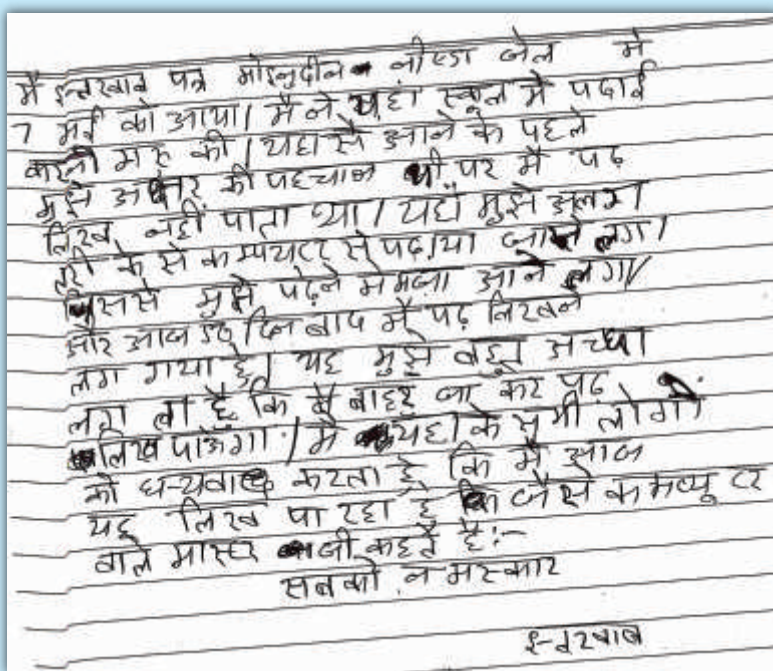 मैं इन्तखाब पत्र मोइनुदीन नोएडा जेल मे
7 मई को आया। मैं ने यहा स्कूल मे पढाई
करनी सरु की। यहा से आने के पहले
मुझे अक्षर की पहचान थी पर मैं पढ़
लिख नहीं पाता था। यहाँ मुझे अलग
तरी के से कम्पयूटर से पढाया जाने लगा।
जिससे मुझे पढ़ने मे मजा आने लगा
और आज दिन बाद मैं पढ़ लिखने
लग गया हूं। यह मुझे बहुत अच्छा
लग ता है कि मैं बाहर जा कर पढ
लिख पाऊंगा। मैं यहा के सभी लोगो
को धन्यवाद करता हूं कि मैं आज
यह लिख पा रहा हूं कि जैसे कमप्यूटर
वाले मास्टर जी कहते है:-
सबको नमस्कार